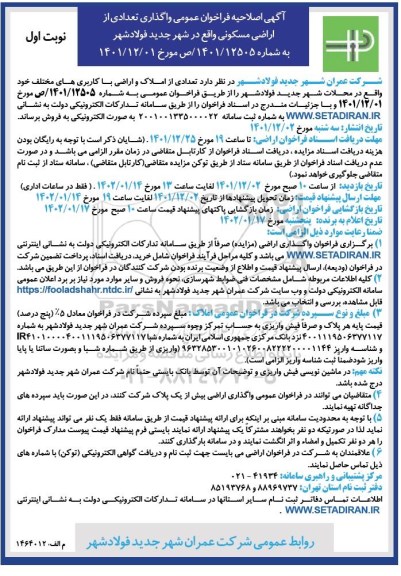 آگهی اصلاحیه فراخوان عمومی واگذاری تعدادی از
اراضی مسکونی واقع در شهر جدید فولادشهر
به شماره ۱۴۰۱/۱۲۵۰۵/ص مورخ ۱۴۰۱/۱۲/۰۱
نوبت اول
شرکت عمران شهر جدید فولادشهر در نظر دارد تعدادی از املاک و اراضی با کاربری های مختلف خود
واقع در محلات شهر جدید فولادشهر را از طریق فراخوان عمومی به شماره ۱۴۰۱/۱۲۵۰۵/ص مورخ
۱۴۰۱/۱۲/۰۱ و با جزئیات مندرج در اسناد فراخوان را از طریق سامانه تدارکات الکترونیکی دولت به نشانی
WWW.SETADIRAN.IR به شماره سامانه به صورت الکترونیکی به فروش برساند.
تاریخ انتشار: سه شنبه مورخ ۱۴۰۱/۱۲/۰۲
مهلت دریافت اسناد فراخوان اراضی: تا ساعت ۱۹ مورخ ۱۴۰۱/۱۲/۲۵ . (شایان ذکر است با توجه به رایگان بودن
هزینه دریافت اسناد مزایده ، دریافت اسناد فراخوان از کارتابل متقاضی در زمان مقرر الزامی می باشد و در صورت
عدم دریافت اسناد فراخوان از طریق سامانه ستاد از طریق توکن مزایده متقاضی(کارتابل متقاضی) ، سامانه ستاد از ثبت نام
متقاضی جلوگیری خواهد نمود.)
تاریخ بازدید: از ساعت ۱۰ صبح مورخ ۱۴۰۱/۱۲/۰۲ لغایت ساعت ۱۳ مورخ ۱۴۰۲/۰۱/۱۴ . ( فقط در ساعات اداری)
مهلت ارسال پیشنهاد قیمت: زمان تحویل پیشنهادها از تاریخ ۱۴۰۱/۱۲/۰۲ لغایت ساعت ۱۹ مورخ ۱۴۰۲/۰۱/۱۴
تاریخ بازگشایی فراخوان اراضی: زمان بازگشایی پاکتهای پیشنهاد قیمت ساعت ۱۰ صبح مورخ ۱۴۰۲/۰۱/۱۶
تاریخ اعلام به برنده: پنجشنبه مورخ ۱۴۰۲/۰۱/۱۷
ضمنا رعایت موارد ذیل الزامی است:
۱) برگزاری فراخوان واگذاری اراضی (مزایده) صرفاً از طریق سامانه تدارکات الکترونیکی دولت به نشانی اینترنتی
WWW.SETADIRAN.IR می باشد و کلیه مراحل فرآیند فراخوان شامل خرید، دریافت اسناد، پرداخت تضمین شرکت
در فراخوان (ودیعه)، ارسال پیشنهاد قیمت و اطلاع از وضعیت برنده بودن شرکت کنندگان در فراخوان از این طریق می باشد.
۲) کلیه اطلاعات مربوطه شامل مشخصات فنی، ضوابط شهرسازی، نحوه فروش و سایر موارد مورد نیاز بر برد اعلان عمومی
سامانه الکترونیکی دولت و وب سایت شرکت عمران شهر جدید فولادشهر به نشانی https://fooladshahr.ntdc.ir/
قابل مشاهده، بررسی و انتخاب می باشد.
۳) مبلغ و نوع سپرده شرکت در فراخوان عمومی املاک : مبلغ سپرده شرکت در فراخوان معادل ۵٪ (پنج درصد)
قیمت پایه هر پلاک و صرفا فیش واریزی به حساب تمرکز وجوه سپرده شرکت عمران شهر جدید فولادشهر به شماره
نزد بانک مرکزی جمهوری اسلامی ایران به شماره شبا
و شناسه واریز (واریزی از طریق شماره شبا و بصورت ساتنا یا پایا
واریز شودضمنا ثبت شناسه واریز الزامی است).
نکته مهم: در ماشین نویسی فیش واریزی و توضیحات آن توسط بانک بایستی حتما نام شرکت عمران شهر جدید فولادشهر
درج شده باشد.
۴) متقاضیان می توانند در فراخوان عمومی واگذاری اراضی بیش از یک پلاک شرکت کنند، در این صورت باید سپرده های
جداگانه تهیه نمایند.
۵) با توجه به محدودیت سامانه مبنی بر اینکه برای ارائه پیشنهاد قیمت از طریق سامانه فقط یک نفر می تواند پیشنهاد ارائه
نماید لذا در صورتیکه دو نفر بخواهند مشترکاً یک پیشنهاد ارائه نمایند بایستی فرم پیشنهاد قیمت پیوست مدارک فراخوان
را هر دو نفر تکمیل و امضاء و اثر انگشت نمایند و در سامانه بارگذاری کنند.
۶) علاقمندان به شرکت در فراخوان اراضی می بایست جهت ثبت نام و دریافت گواهی الکترونیکی (توکن) با شماره های
ذیل تماس حاصل نمایند.
مرکز پشتیبانی و راهبری سامانه: ۴۱۹۳۴ - ۰۲۱
دفتر ثبت نام استان تهران: ۸۸۹۶۹۷۳۷ و ۸۵۱۹۳۷۶۸
اطلاعات تماس دفاتر ثبت نام سایر استانها در سامانه تدارکات الکترونیکی دولت به نشانی اینترنتی
WWW.SETADIRAN.IR .
روابط عمومی شرکت عمران شهر جدید فولادشهر
م الف: ۱۴۶۴۰۱۲